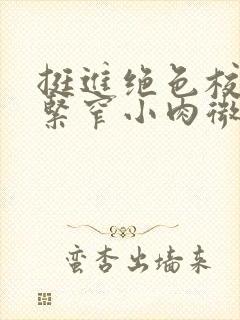 挺进绝色校
紧窄小肉微
蛮杏出墙来